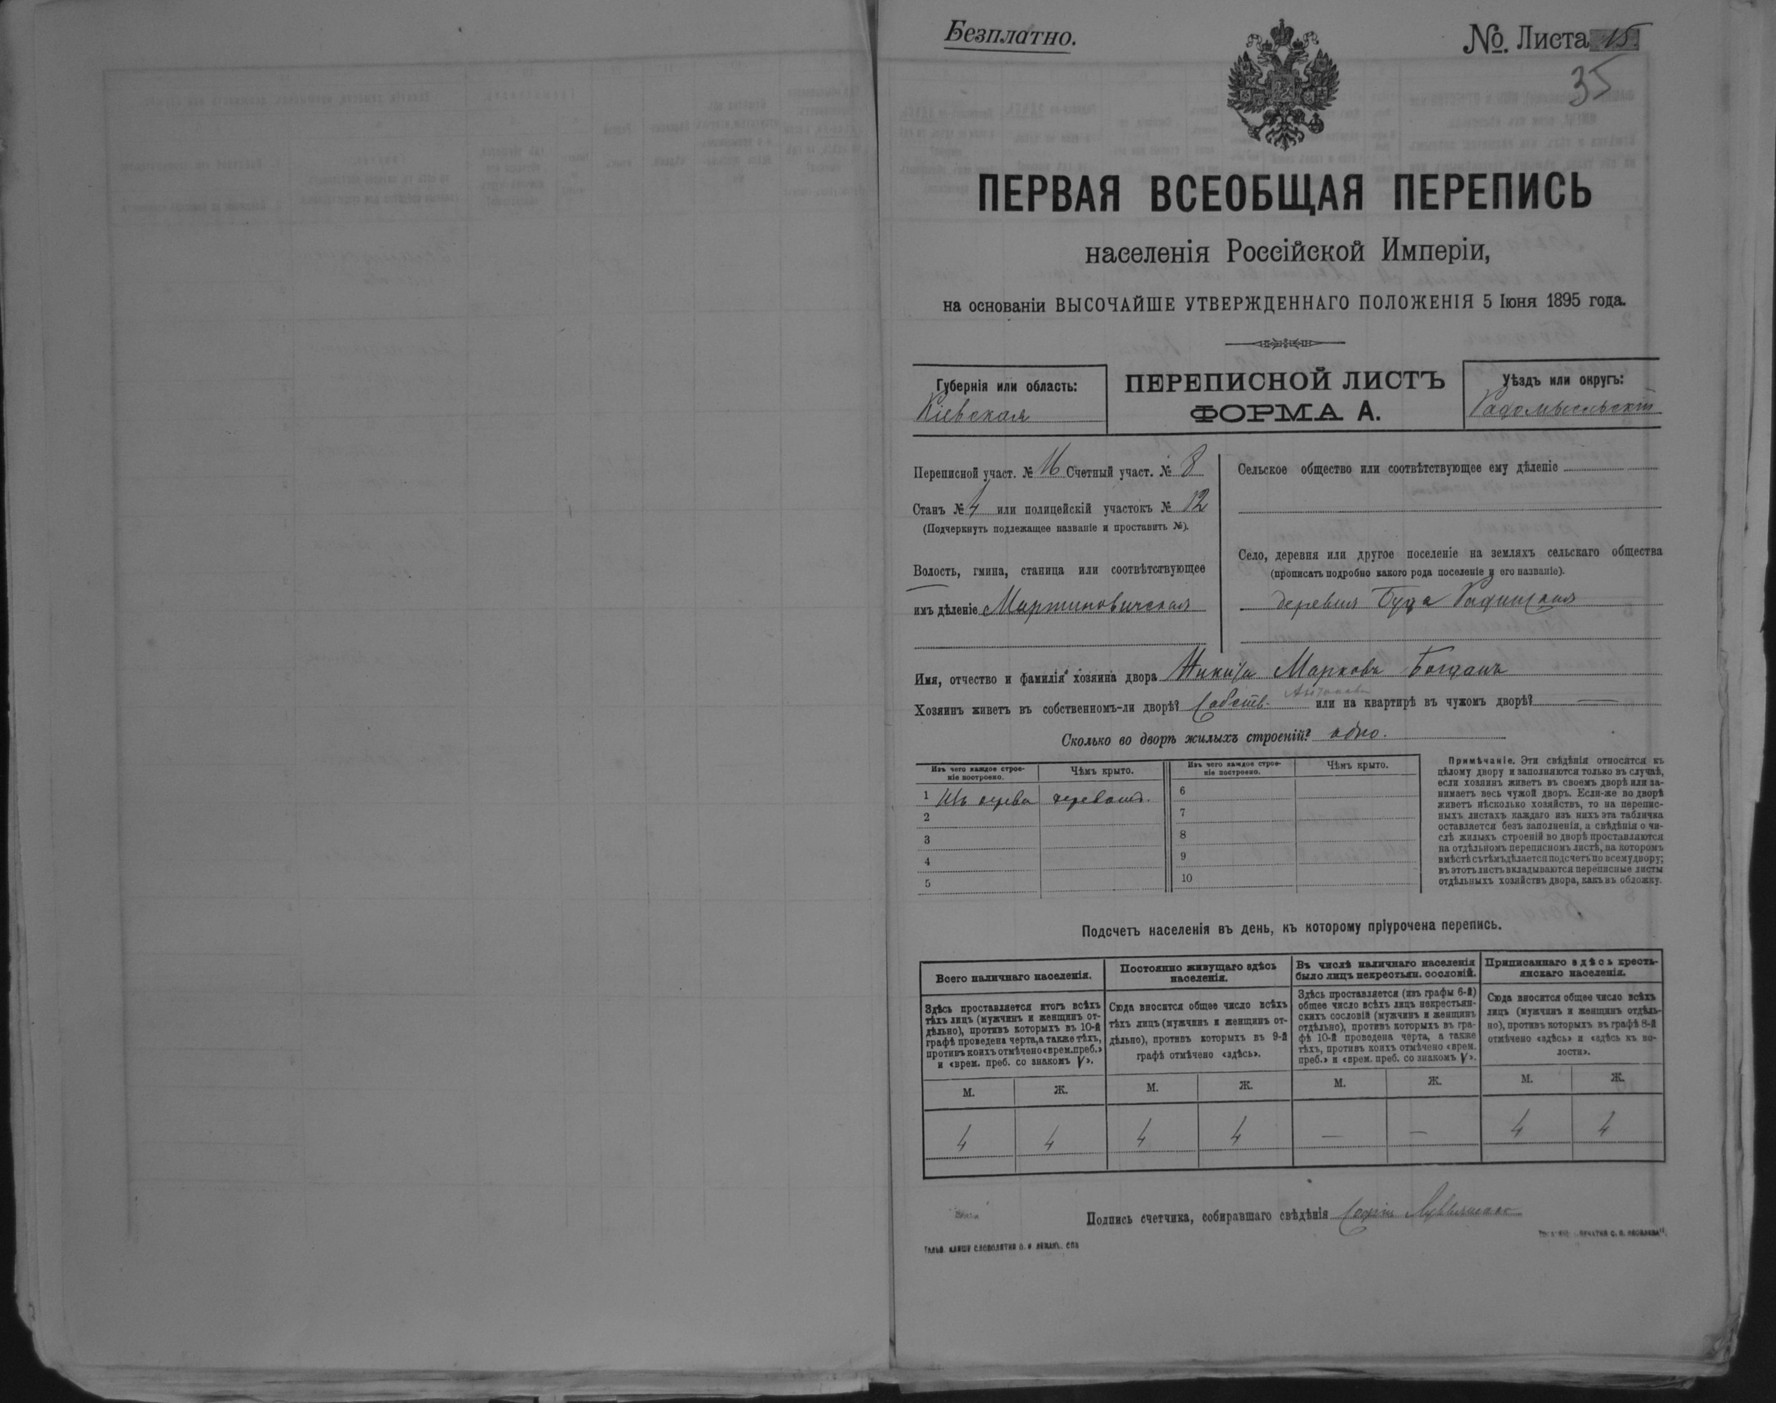 Безплатно.
№. Листа 15
35
ПЕРВАЯ ВСЕОБЩАЯ ПЕРЕПИСЬ
населенія Россійской Имперіи,
на основаніи ВЫСОЧАЙШЕ УТВЕРЖДЕННАГО ПОЛОЖЕНІЯ 5 Іюня 1895 года.
Губернія или область:
Кіевская
ПЕРЕПИСНОЙ ЛИСТЪ
ФОРМА А.
Уѣздъ или округъ:
Радомысльскій
Переписной участ. № 16 Счетный участ. № 8
Станъ № 4 или полицейскій участокъ № 12
(Подчеркнуть подлежащее названіе и проставить №).
Волость, гмина, станица или соотвѣтствующее
имъ дѣленіе Мартиновичская
Сельское общество или соотвѣтствующее ему дѣленіе
Село, деревня или другое поселеніе на земляхъ сельскаго общества
(прописать подробно какого рода поселеніе и его названіе).
деревня Буда Радинская
Имя, отчество и фамилія хозяина двора Никита Марковъ Богданъ
Хозяинъ живетъ въ собственномъ-ли дворѣ? Собств. или на квартирѣ въ чужомъ дворѣ? —
Сколько во дворѣ жилыхъ строеній? одно.
Изъ чего каждое строе-
ніе построено.
Чѣмъ крыто.
Изъ чего каждое строе-
ніе построено.
Чѣмъ крыто.
1 Изъ дерева деревомъ.
2
3
4
5
6
7
8
9
10
Примѣчаніе. Эти свѣдѣнія относятся къ
цѣлому двору и заполняются только въ случаѣ,
если хозяинъ живетъ въ своемъ дворѣ или за-
нимаетъ весь чужой дворъ. Если-же во дворѣ
живетъ нѣсколько хозяйствъ, то на перепис-
ныхъ листахъ каждаго изъ нихъ эта табличка
оставляется безъ заполненія, а свѣдѣнія о чи-
слѣ жилыхъ строеній во дворѣ проставляются
на отдѣльномъ переписномъ листѣ, на которомъ
вмѣстѣ съ тѣмъ дѣлается подсчетъ по всему двору;
въ этотъ листъ вкладываются переписные листы
отдѣльныхъ хозяйствъ двора, какъ въ обложку.
Подсчетъ населенія въ день, къ которому пріурочена перепись.
Всего наличнаго населенія.
Здѣсь проставляется итогъ всѣхъ
тѣхъ лицъ (мужчинъ и женщинъ от-
дѣльно), противъ которыхъ въ 10-й
графѣ проведена черта, а также тѣхъ,
противъ коихъ отмѣчено «врем. преб.»
и «врем. преб. со знакомъ V».
Постоянно живущаго здѣсь
населенія.
Сюда вносится общее число всѣхъ
тѣхъ лицъ (мужчинъ и женщинъ от-
дѣльно), противъ которыхъ въ 9-й
графѣ отмѣчено «здѣсь».
Въ числѣ наличнаго населенія
было лицъ некрестьян. сословій.
Здѣсь проставляется (изъ графы 6-й)
общее число всѣхъ лицъ некрестьян-
скихъ сословій (мужчинъ и женщинъ
отдѣльно), противъ которыхъ въ гра-
фѣ 10-й проведена черта, а также
тѣхъ, противъ коихъ отмѣчено «врем.
преб.» и «врем. преб. со знакомъ V».
Приписаннаго здѣсь кресть-
янскаго населенія.
Сюда вносится общее число всѣхъ
лицъ (мужчинъ и женщинъ отдѣль-
но), противъ которыхъ въ графѣ 8-й
отмѣчено «здѣсь» и «здѣсь къ во-
лости».
М. Ж. М. Ж. М. Ж. М. Ж.
4 4 4 4 — — 4 4
Подпись счетчика, собиравшаго свѣдѣнія